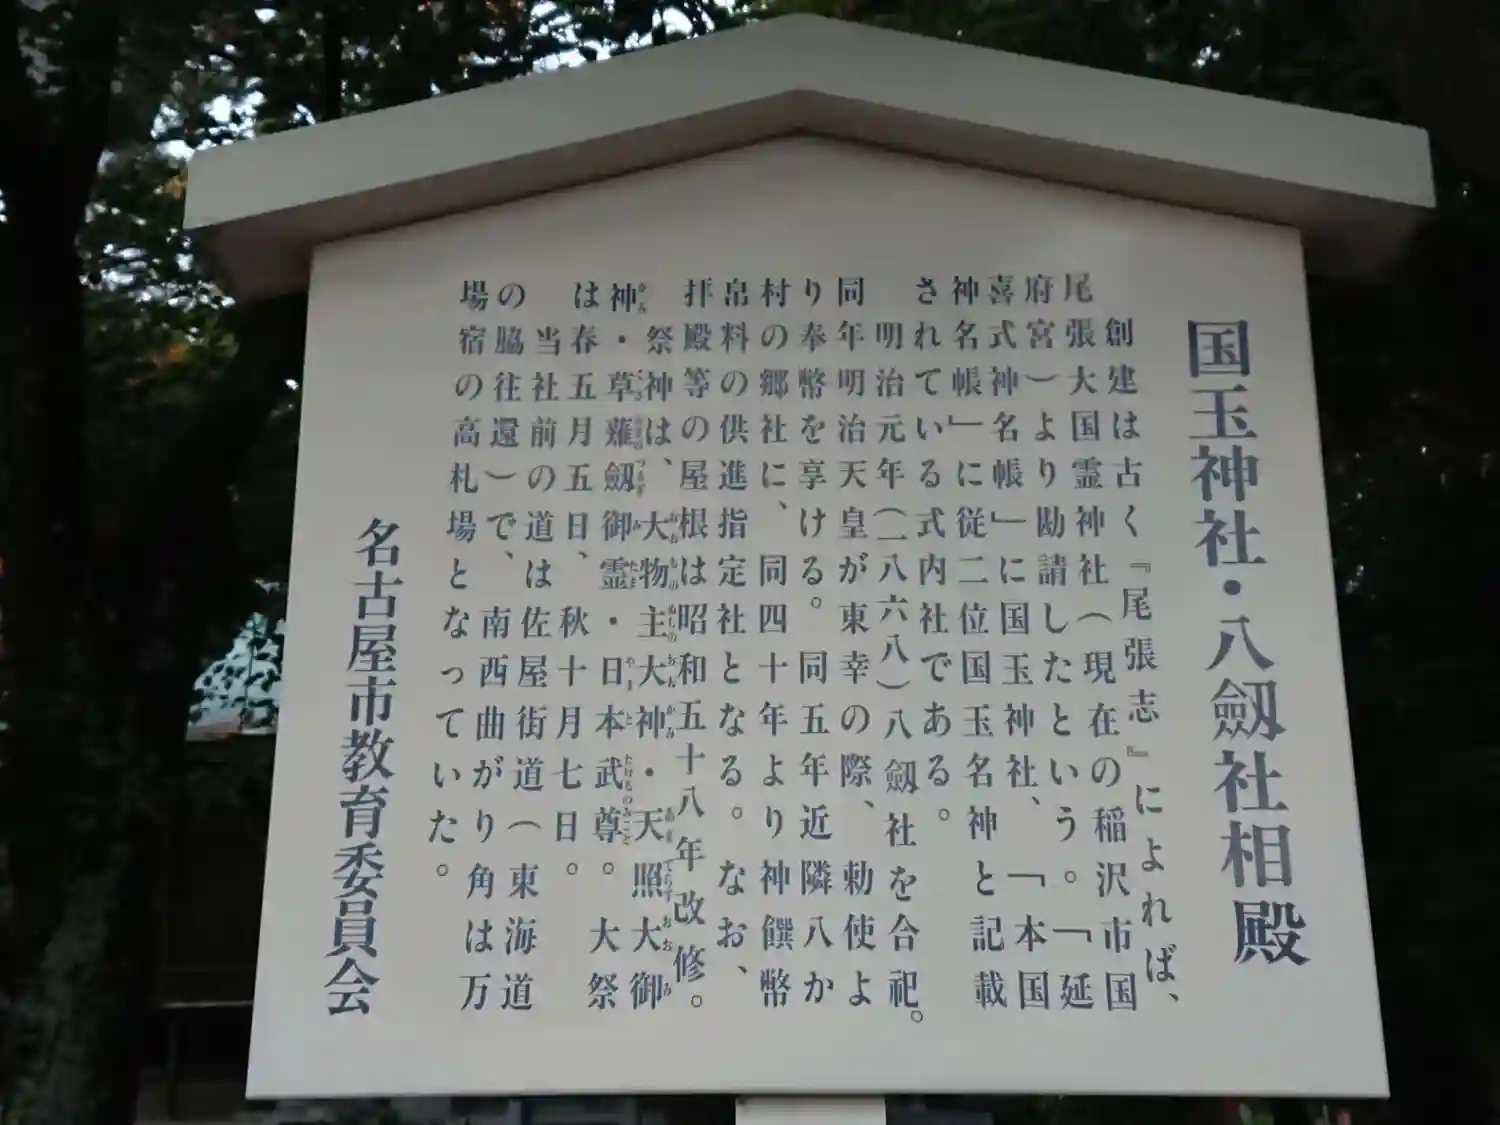 国玉神社・八劔社相殿
創建は古く『尾張志』によれば、
尾張大国霊神社（現在の稲沢市国
府宮）より勘請したという。「延
喜式神名帳」に国玉神社、「本国
神名帳」に従二位国玉名神と記載
されている式内社である。
明治元年（一八六八）八劔社を合祀。
同年明治天皇が東幸の際、勅使よ
り奉幣を享ける。同五年近隣八か
村の郷社に、同四十年より神饌幣
帛料の供進指定社となる。なお、
拝殿等の屋根は昭和五十八年改修。
祭神は、大物主大神・天照大御
神・草薙劔御霊・日本武尊。大祭
は春五月五日、秋十月七日。
当社前の道は佐屋街道（東海道
の脇往還）で、南西曲がり角は万
場宿の高札場となっていた。
名古屋市教育委員会